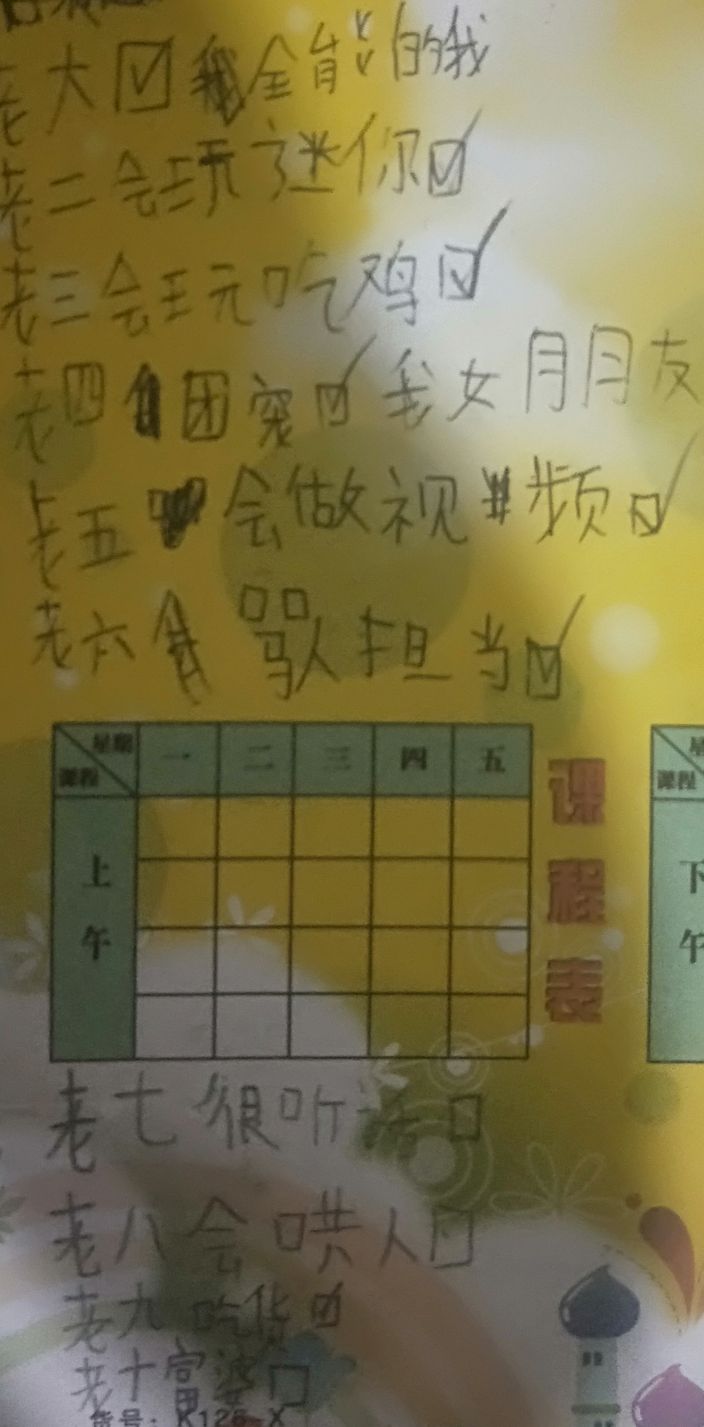 老大☑全能的我
老二会玩迷你☑
老三会玩吃鸡☑
老四团宠☑我女月月友
老五会做视频☑
老六骂人担当☑
星期 一 二 三 四 五
课程
上午
课程表
星
课程
下午
老七很听话口
老八会哄人口
老九吃货☑
老十富婆口
货号：K126-X